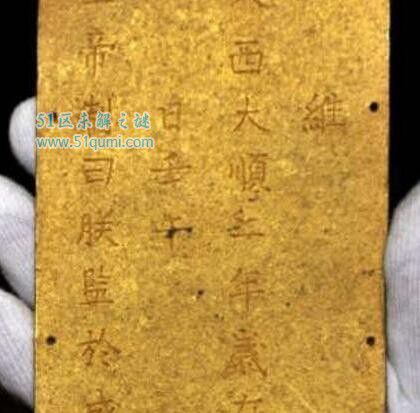 維
西大順二年歲
日壬午
帝制曰朕監於
51区未解之谜
www.51qumi.com